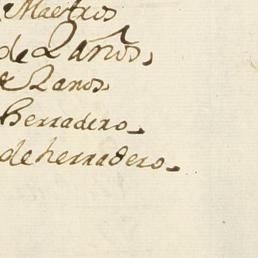 Maestros
de 2 años,
de 2 anos.
herradero.
de herradero.